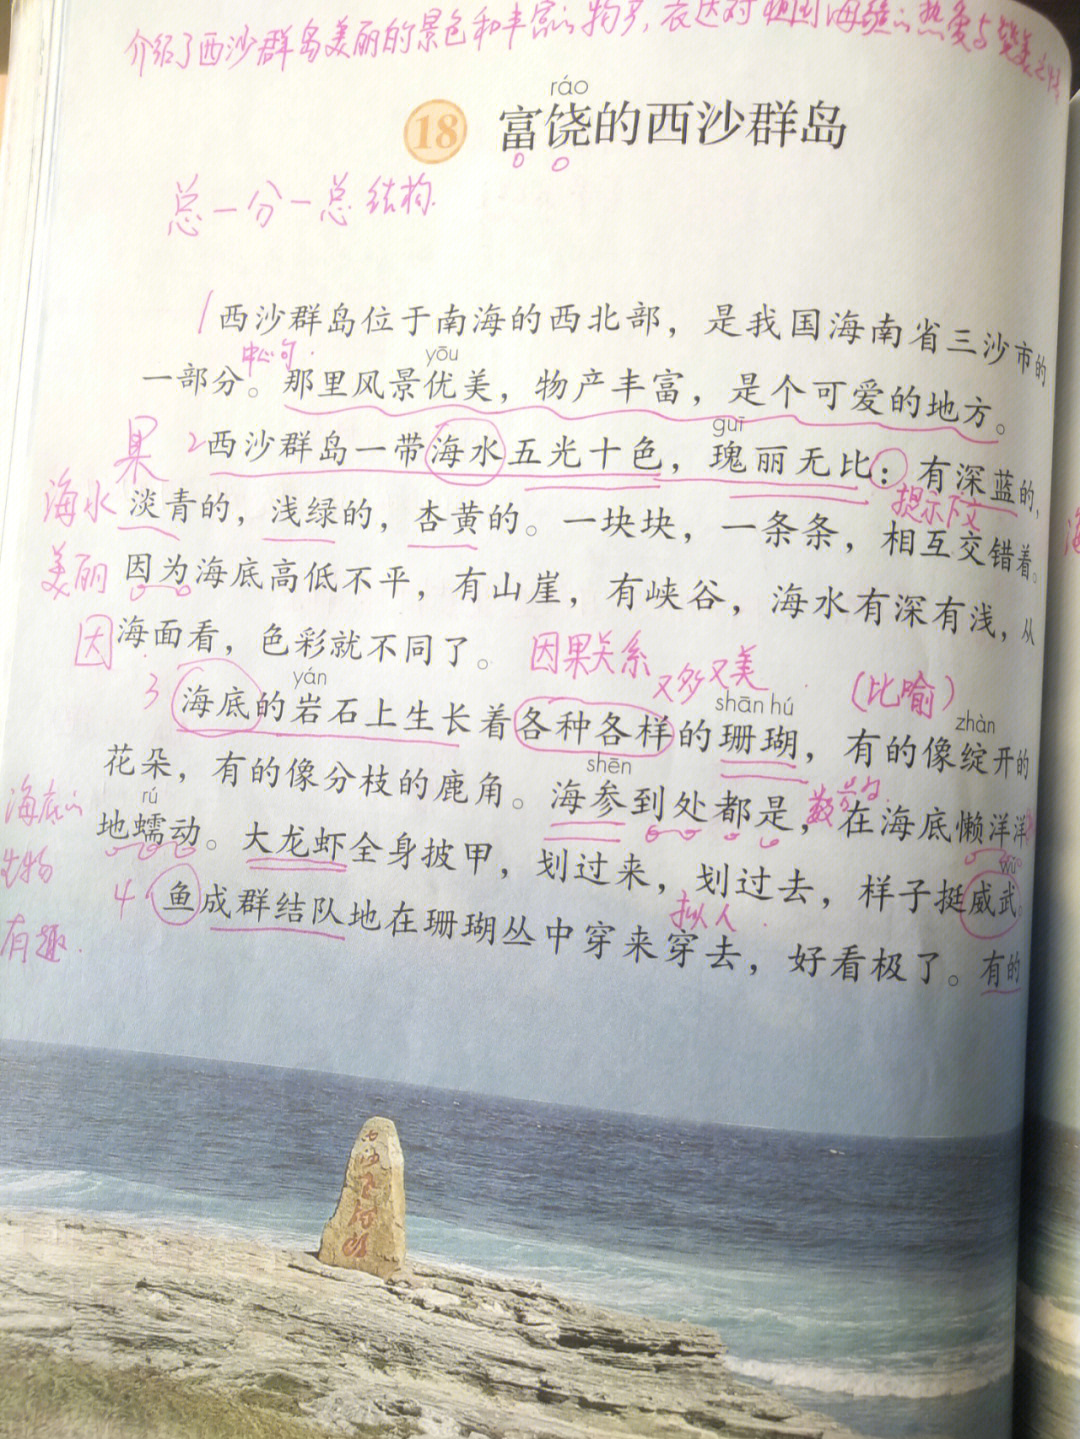 介绍了西沙群岛美丽的景色和丰富的物产,表达对祖国海疆的热爱与赞美之情
ráo
18 富饶的西沙群岛
总一分一总结构.
1 西沙群岛位于南海的西北部，是我国海南省三沙市的
中心句.
yōu
一部分。那里风景优美，物产丰富，是个可爱的地方。
guī
果
2 西沙群岛一带海水五光十色，瑰丽无比：有深蓝的，
提示下文
海水
淡青的，浅绿的，杏黄的。一块块，一条条，相互交错着。
美丽
因为海底高低不平，有山崖，有峡谷，海水有深有浅，从
因
海面看，色彩就不同了。
因果关系
又多又美
(比喻)
yán
shān hú
3 海底的岩石上生长着各种各样的珊瑚，有的像绽开的
zhàn
shēn
花朵，有的像分枝的鹿角。海参到处都是，在海底懒洋洋
海底的
rú
地蠕动。大龙虾全身披甲，划过来，划过去，样子挺威武。
wǔ
生物
拟人.
4. 鱼成群结队地在珊瑚丛中穿来穿去，好看极了。有的
有趣.